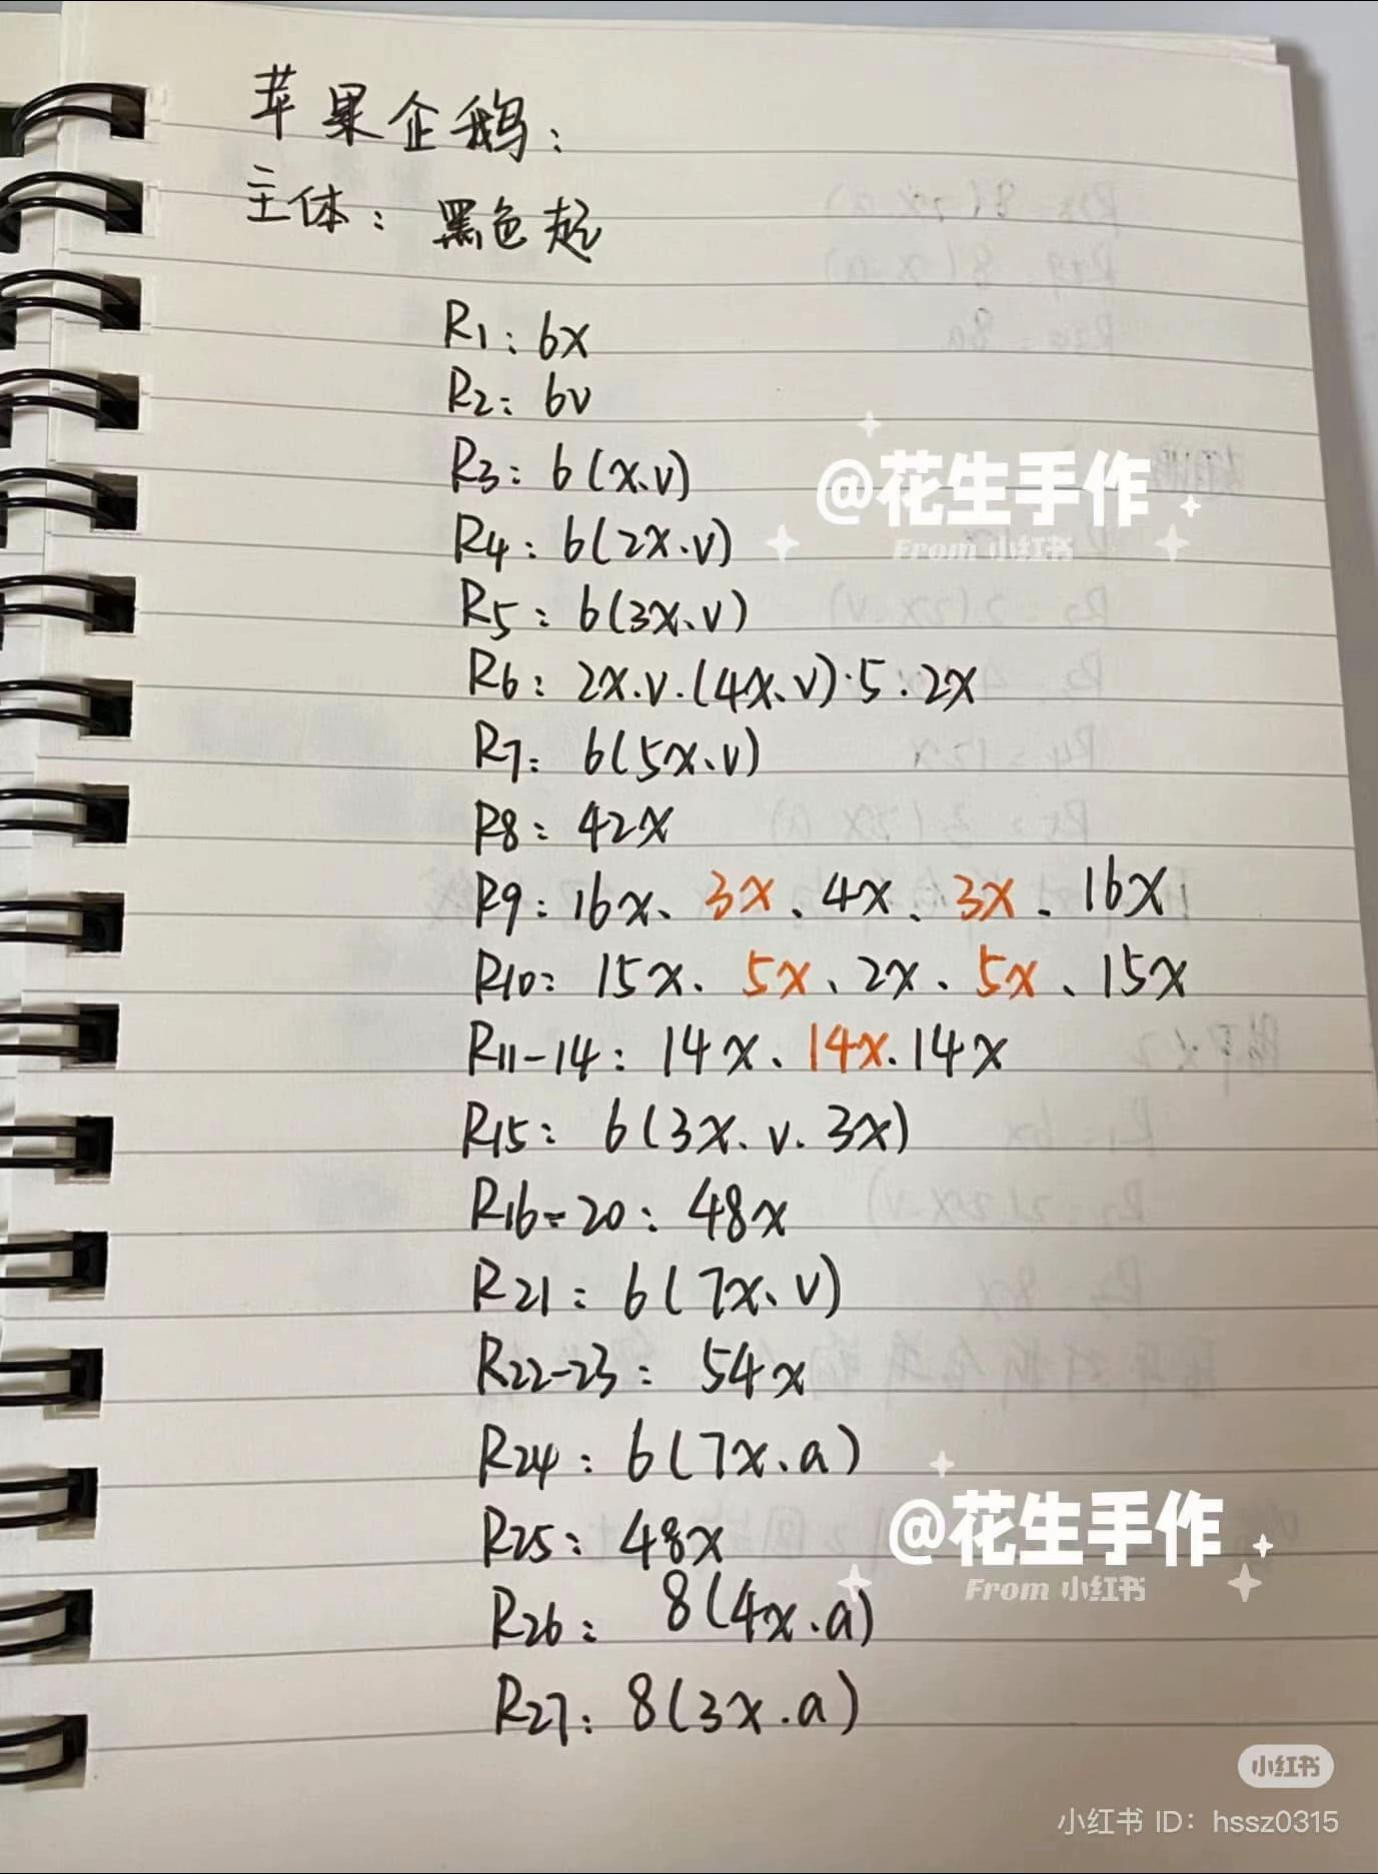 苹果企鹅：
主体：黑色起
R1：6x
R2：6v
R3：6(x、v)
@花生手作
From 小红书
R4：6(2x.v)
R5：6(3x、v)
R6：2x.v.(4x、v)·5.2x
R7：6(5x、v)
R8：42x
R9：16x、3x、4x、3x、16x
R10：15x、5x、2x、5x、15x
R11-14：14x、14x.14x
R15：6(3x.v.3x)
R16-20：48x
R21：6(7x、v)
R22-23：54x
R24：6(7x.a)
@花生手作
From 小红书
R25：48x
R26：8(4x.a)
R27：8(3x.a)
小红书
小红书 ID：hssz0315